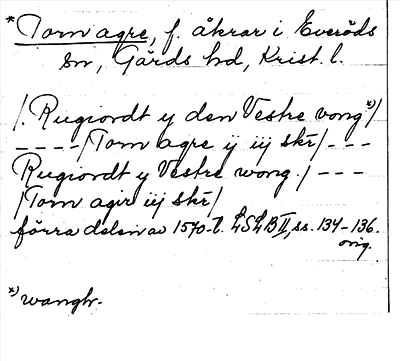 *Torn agre, f. åkrar i Everöds
sn, Gärds hd, Krist. l.
/. Rugiordt y den Vestre vong *)/
----/Torn agre ij iij skr/---
Rugiordt y Vestre wong./---
/Torn agir iij skr/
förra delen av 1570-t. LSLB II, ss. 134-136.
orig.
*) wangh.